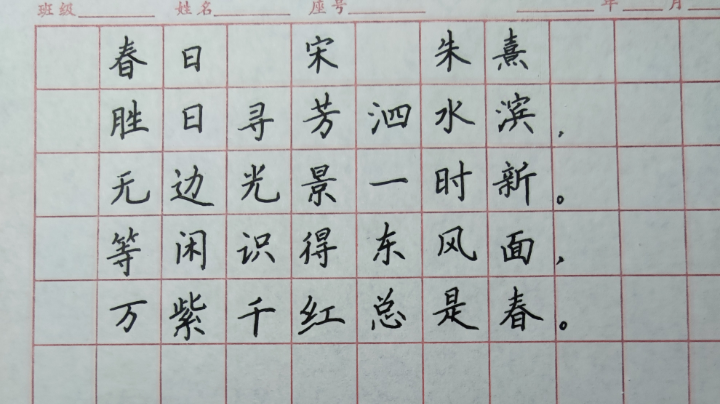 班级 姓名 座号 年 月
春日 宋 朱熹
胜日寻芳泗水滨，
无边光景一时新。
等闲识得东风面，
万紫千红总是春。